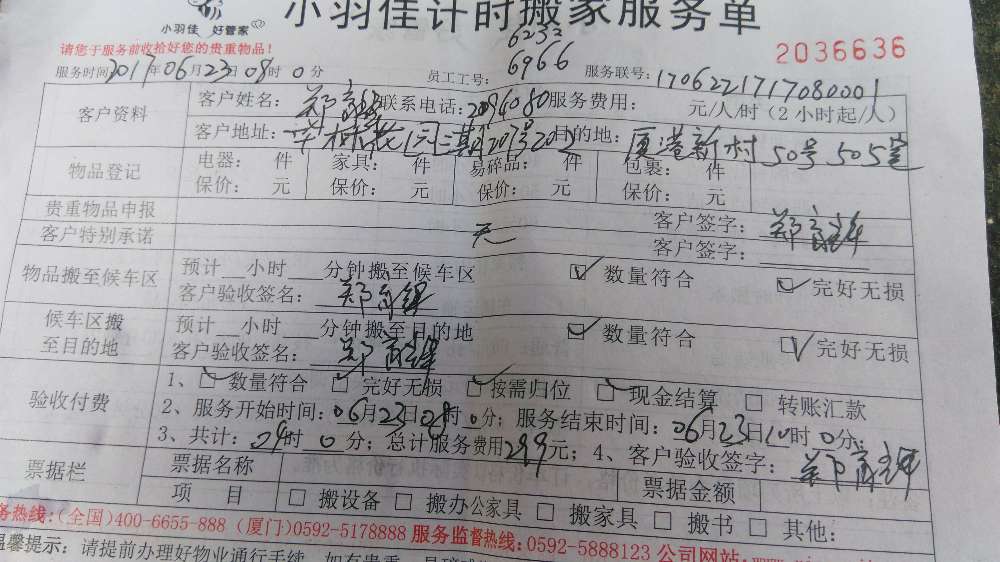 小羽佳 好管家
小羽佳计时搬家服务单
请您于服务前收拾好您的贵重物品!
6232
2036636
服务时间2017年06月23日08时0分 员工工号: 6966 服务联号: 170622171708 0001
客户资料 客户姓名: 郑 联系电话: 2096080 服务费用: 元/人/时 (2小时起/人)
客户地址: 花园三期207号202 目的地: 厦港新村50号505室
物品登记 电器: 件 家具: 件 易碎品: 件 包裹: 件
保价: 元 保价: 元 保价: 元 保价: 元
贵重物品申报 客户签字: 郑
客户特别承诺 无 客户签字:
物品搬至候车区 预计__小时___分钟搬至候车区 ☑ 数量符合 ☑ 完好无损
客户验收签名: 郑
候车区搬至目的地 预计__小时___分钟搬至目的地 ☑ 数量符合 ☑ 完好无损
客户验收签名: 郑
验收付费 1、☑ 数量符合 ☑ 完好无损 ☑ 按需归位 ☑ 现金结算 □ 转账汇款
2、服务开始时间: 06月23日08时0分; 服务结束时间: 06月23日10时0分;
3、共计: 时0分; 总计服务费用299元; 4、客户验收签字: 郑
票据栏 票据名称 票据金额
项 目 □ 搬设备 □ 搬办公家具 □ 搬家具 □ 搬书 □ 其他:
务热线:(全国)400-6655-888 (厦门)0592-5178888 服务监督热线:0592-5888123 公司网站:
温馨提示: 请提前办理好物业通行手续